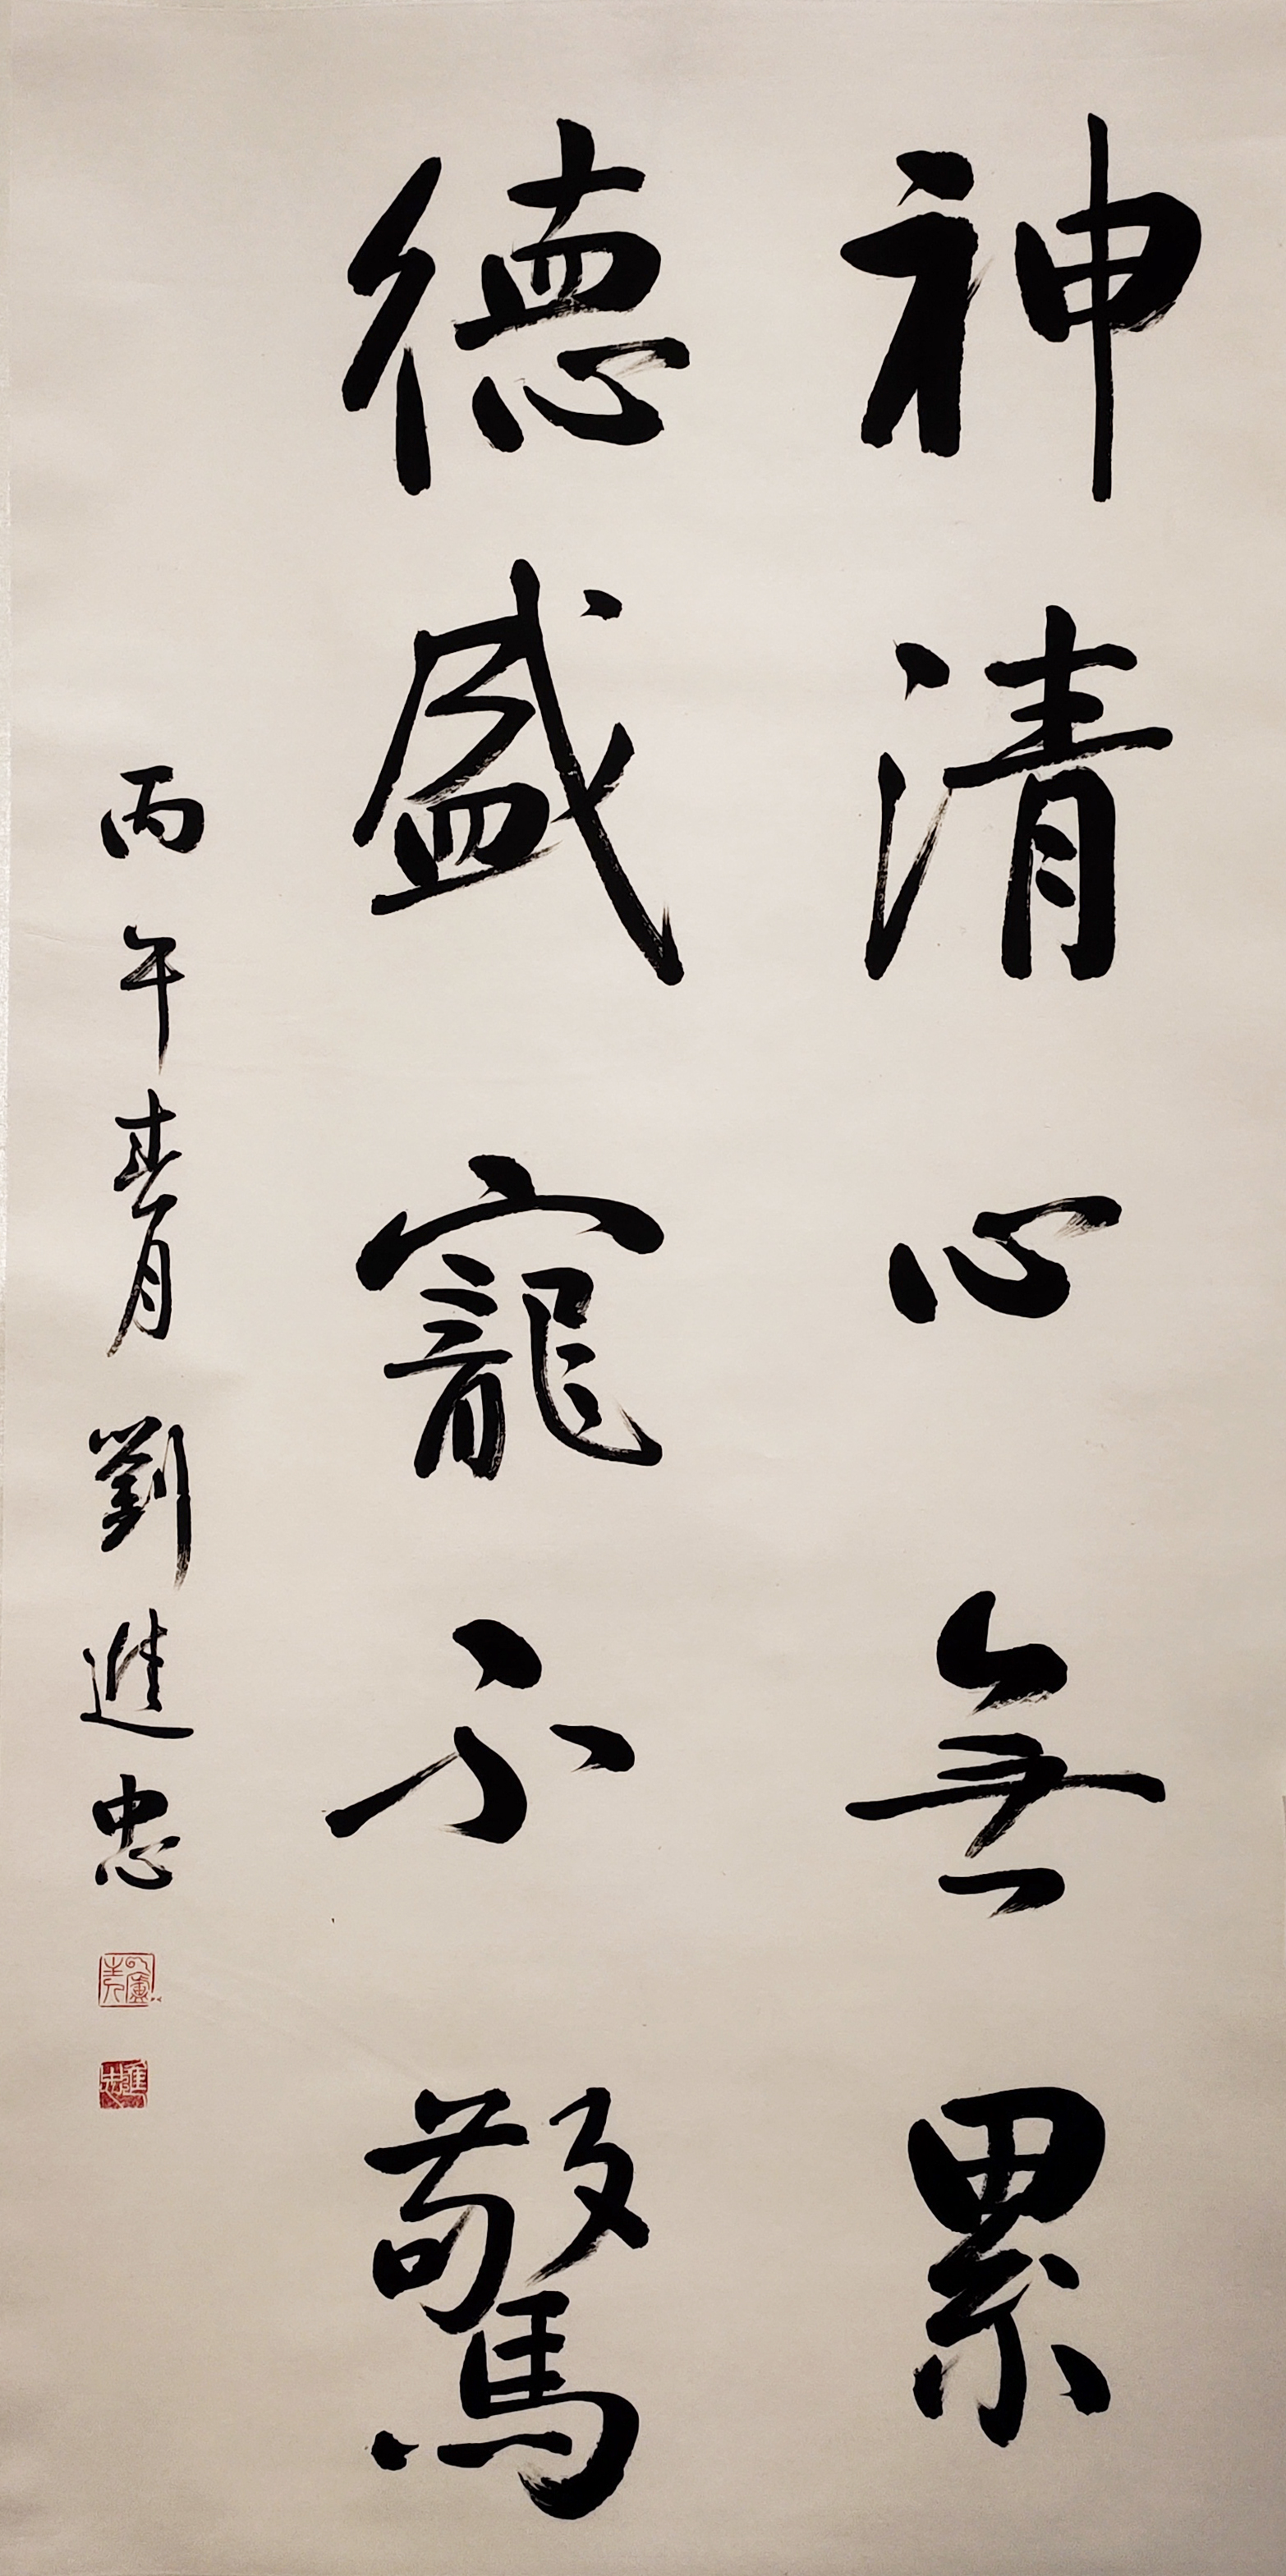 神清心無累
德盛寵不驚
丙午春月劉進忠
進忠